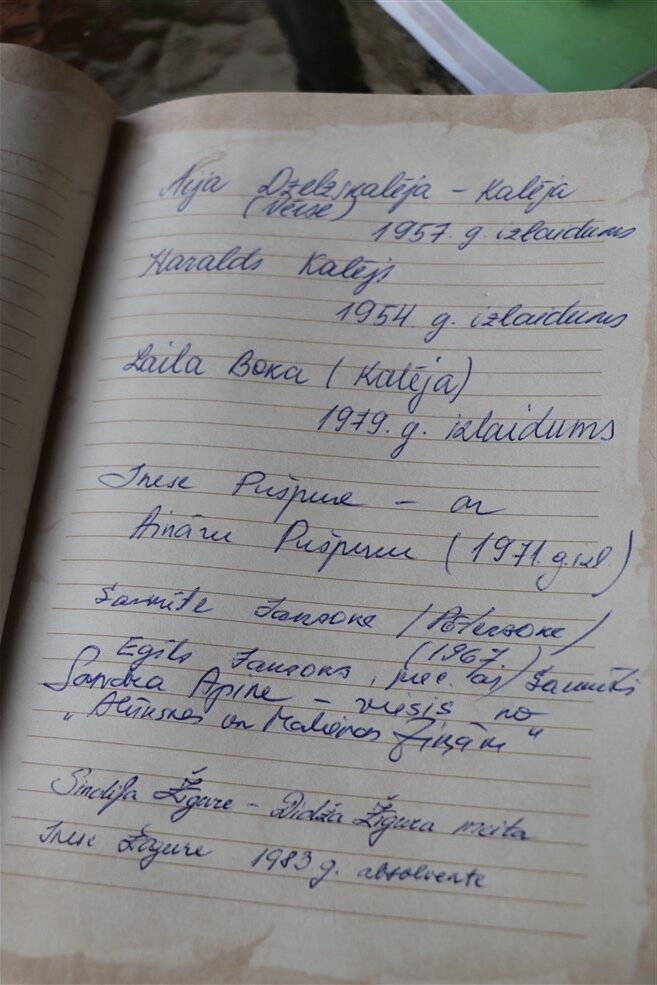 Aija Dzelzskalēja - Kalēja
(Vērse)
1957. g. izlaidums
Haralds Kalējs
1954. g. izlaidums
Laila Boka (Kalēja)
1979. g. izlaidums
Inese Pušpure - ar
Aināru Pušpuru (1971. g. izl.)
Sarmīte Jansone (Pētersone)
(1967.)
Egils Jansons,
Sandra Apine - viesis no
"Alūksnes un Malienas Ziņām"
Sindija Žīgure - Didža Žīgura meita
Inese Žīgure 1983 g. absolvente